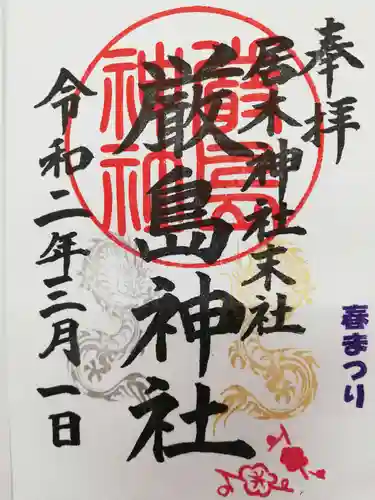 奉拝
居木神社末社
厳島神社
令和二年三月一日
春まつり